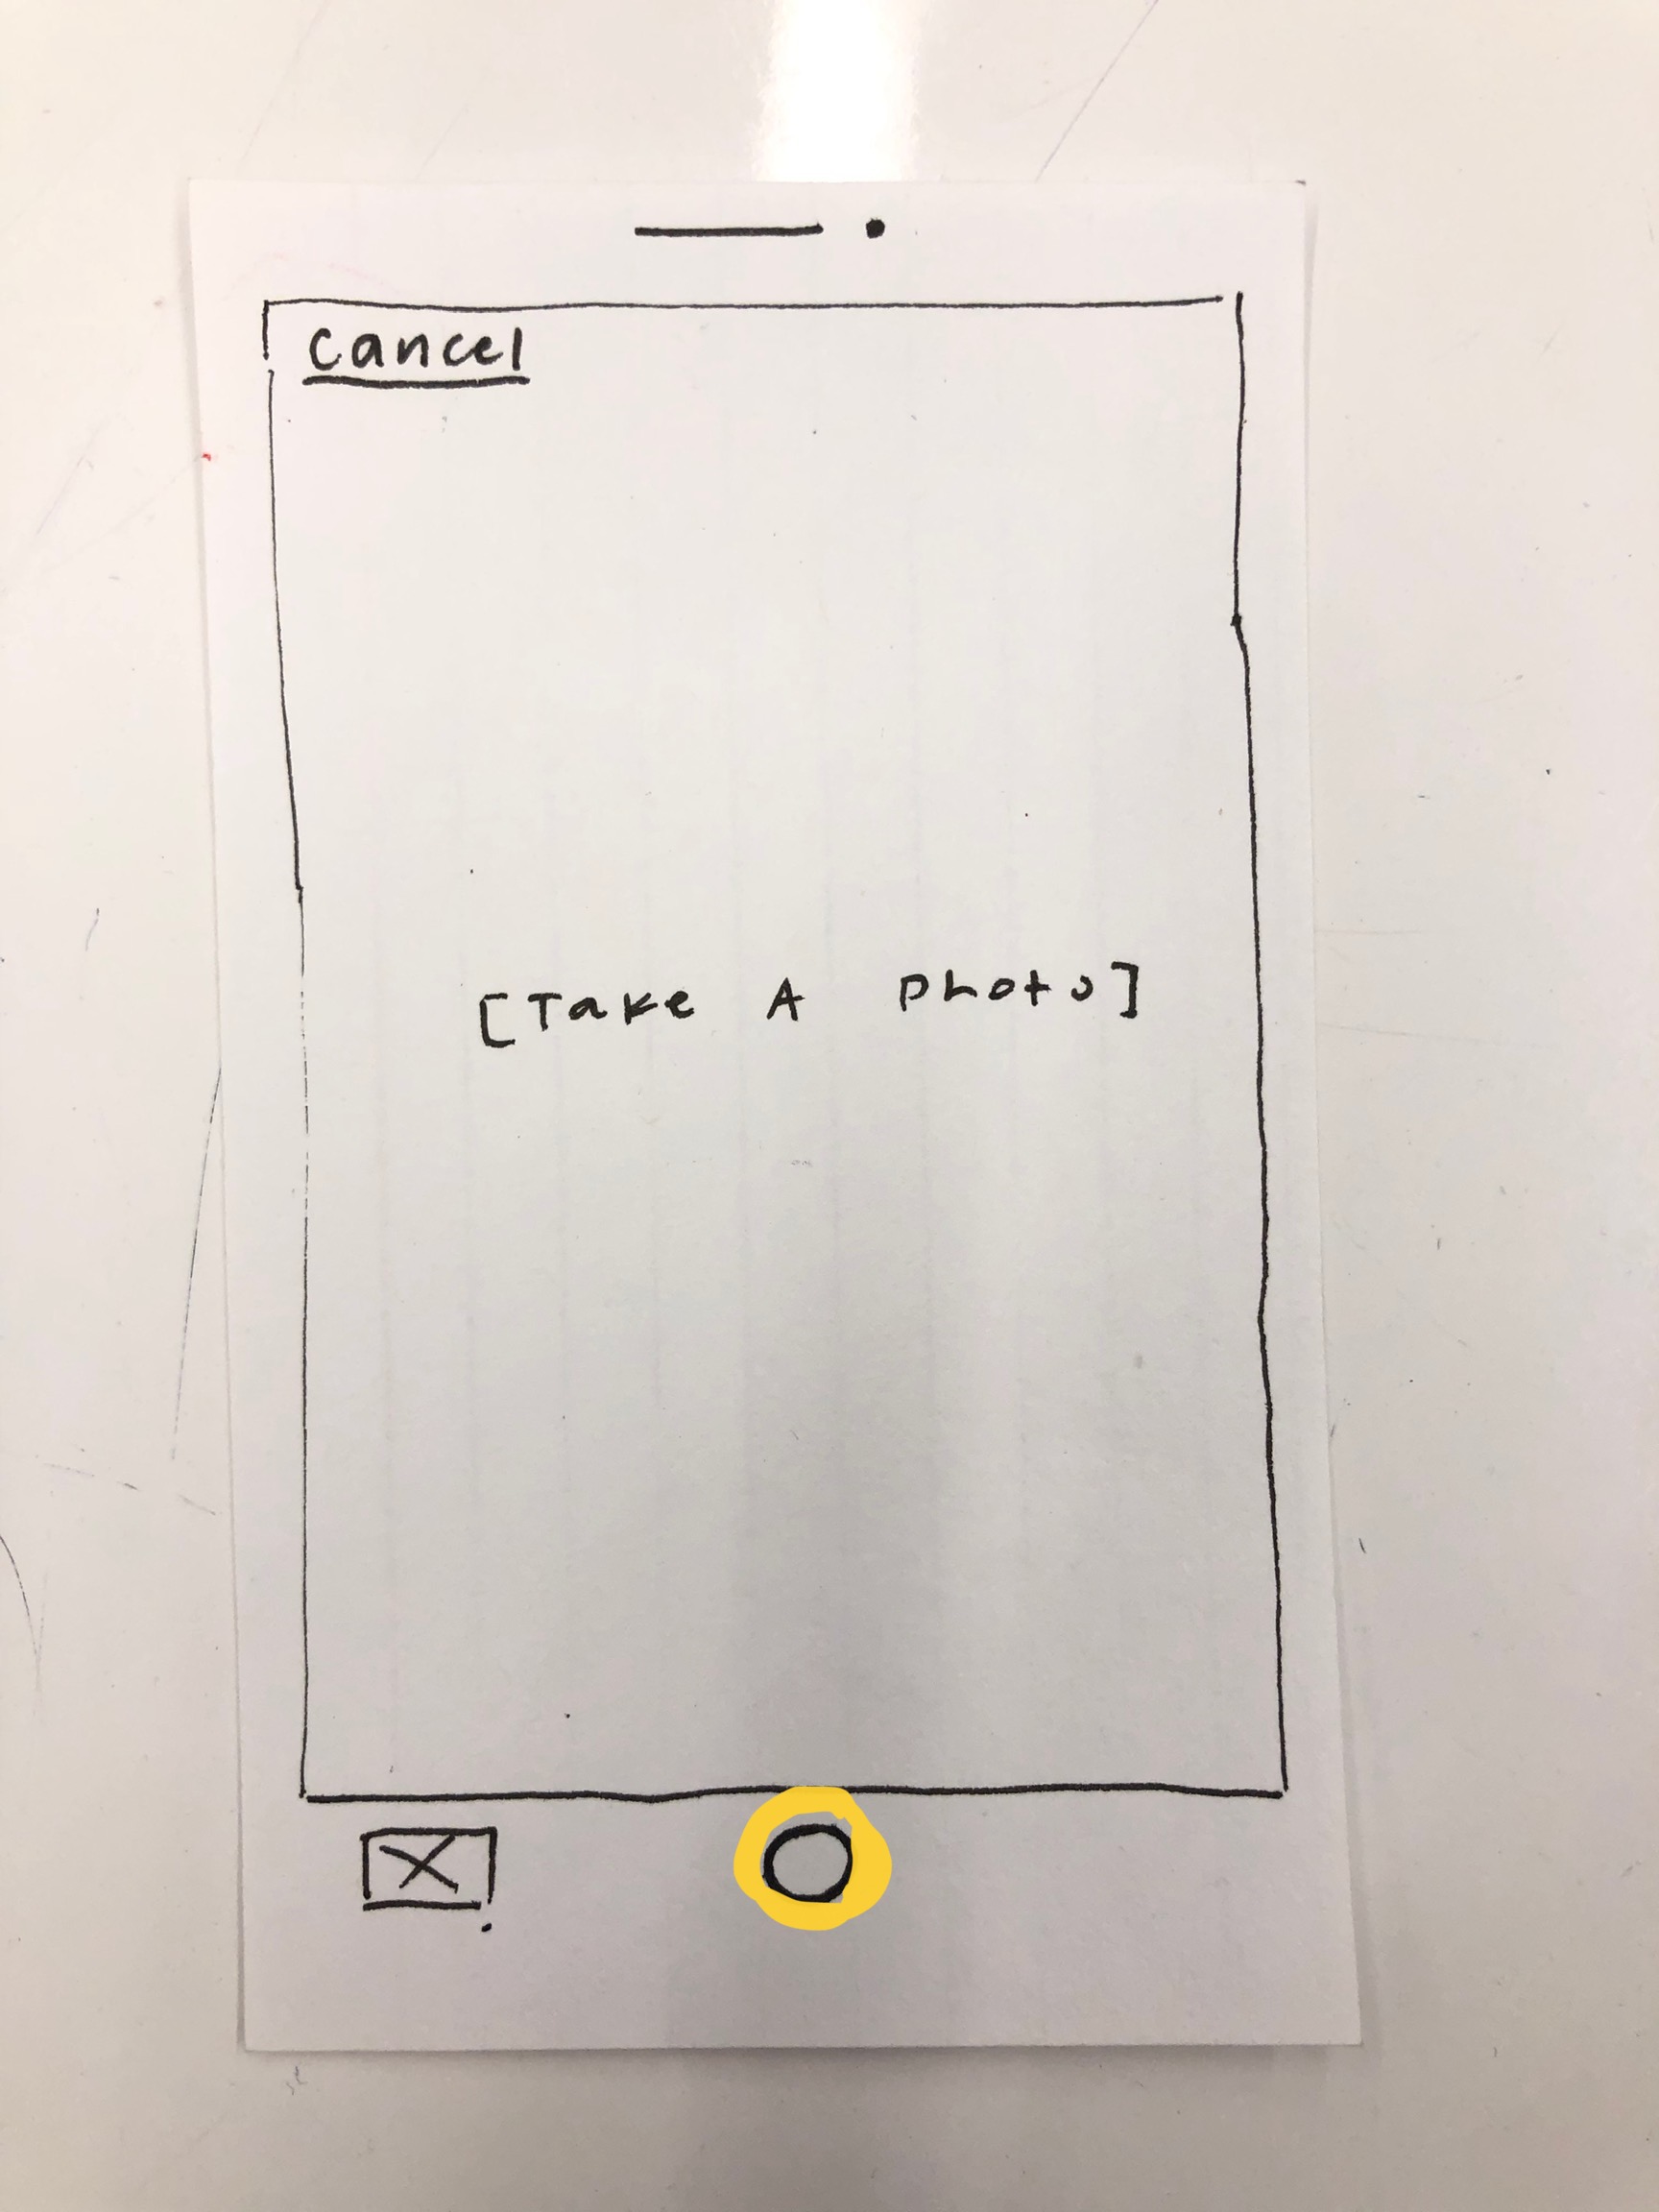 cancel
[Take A photo]